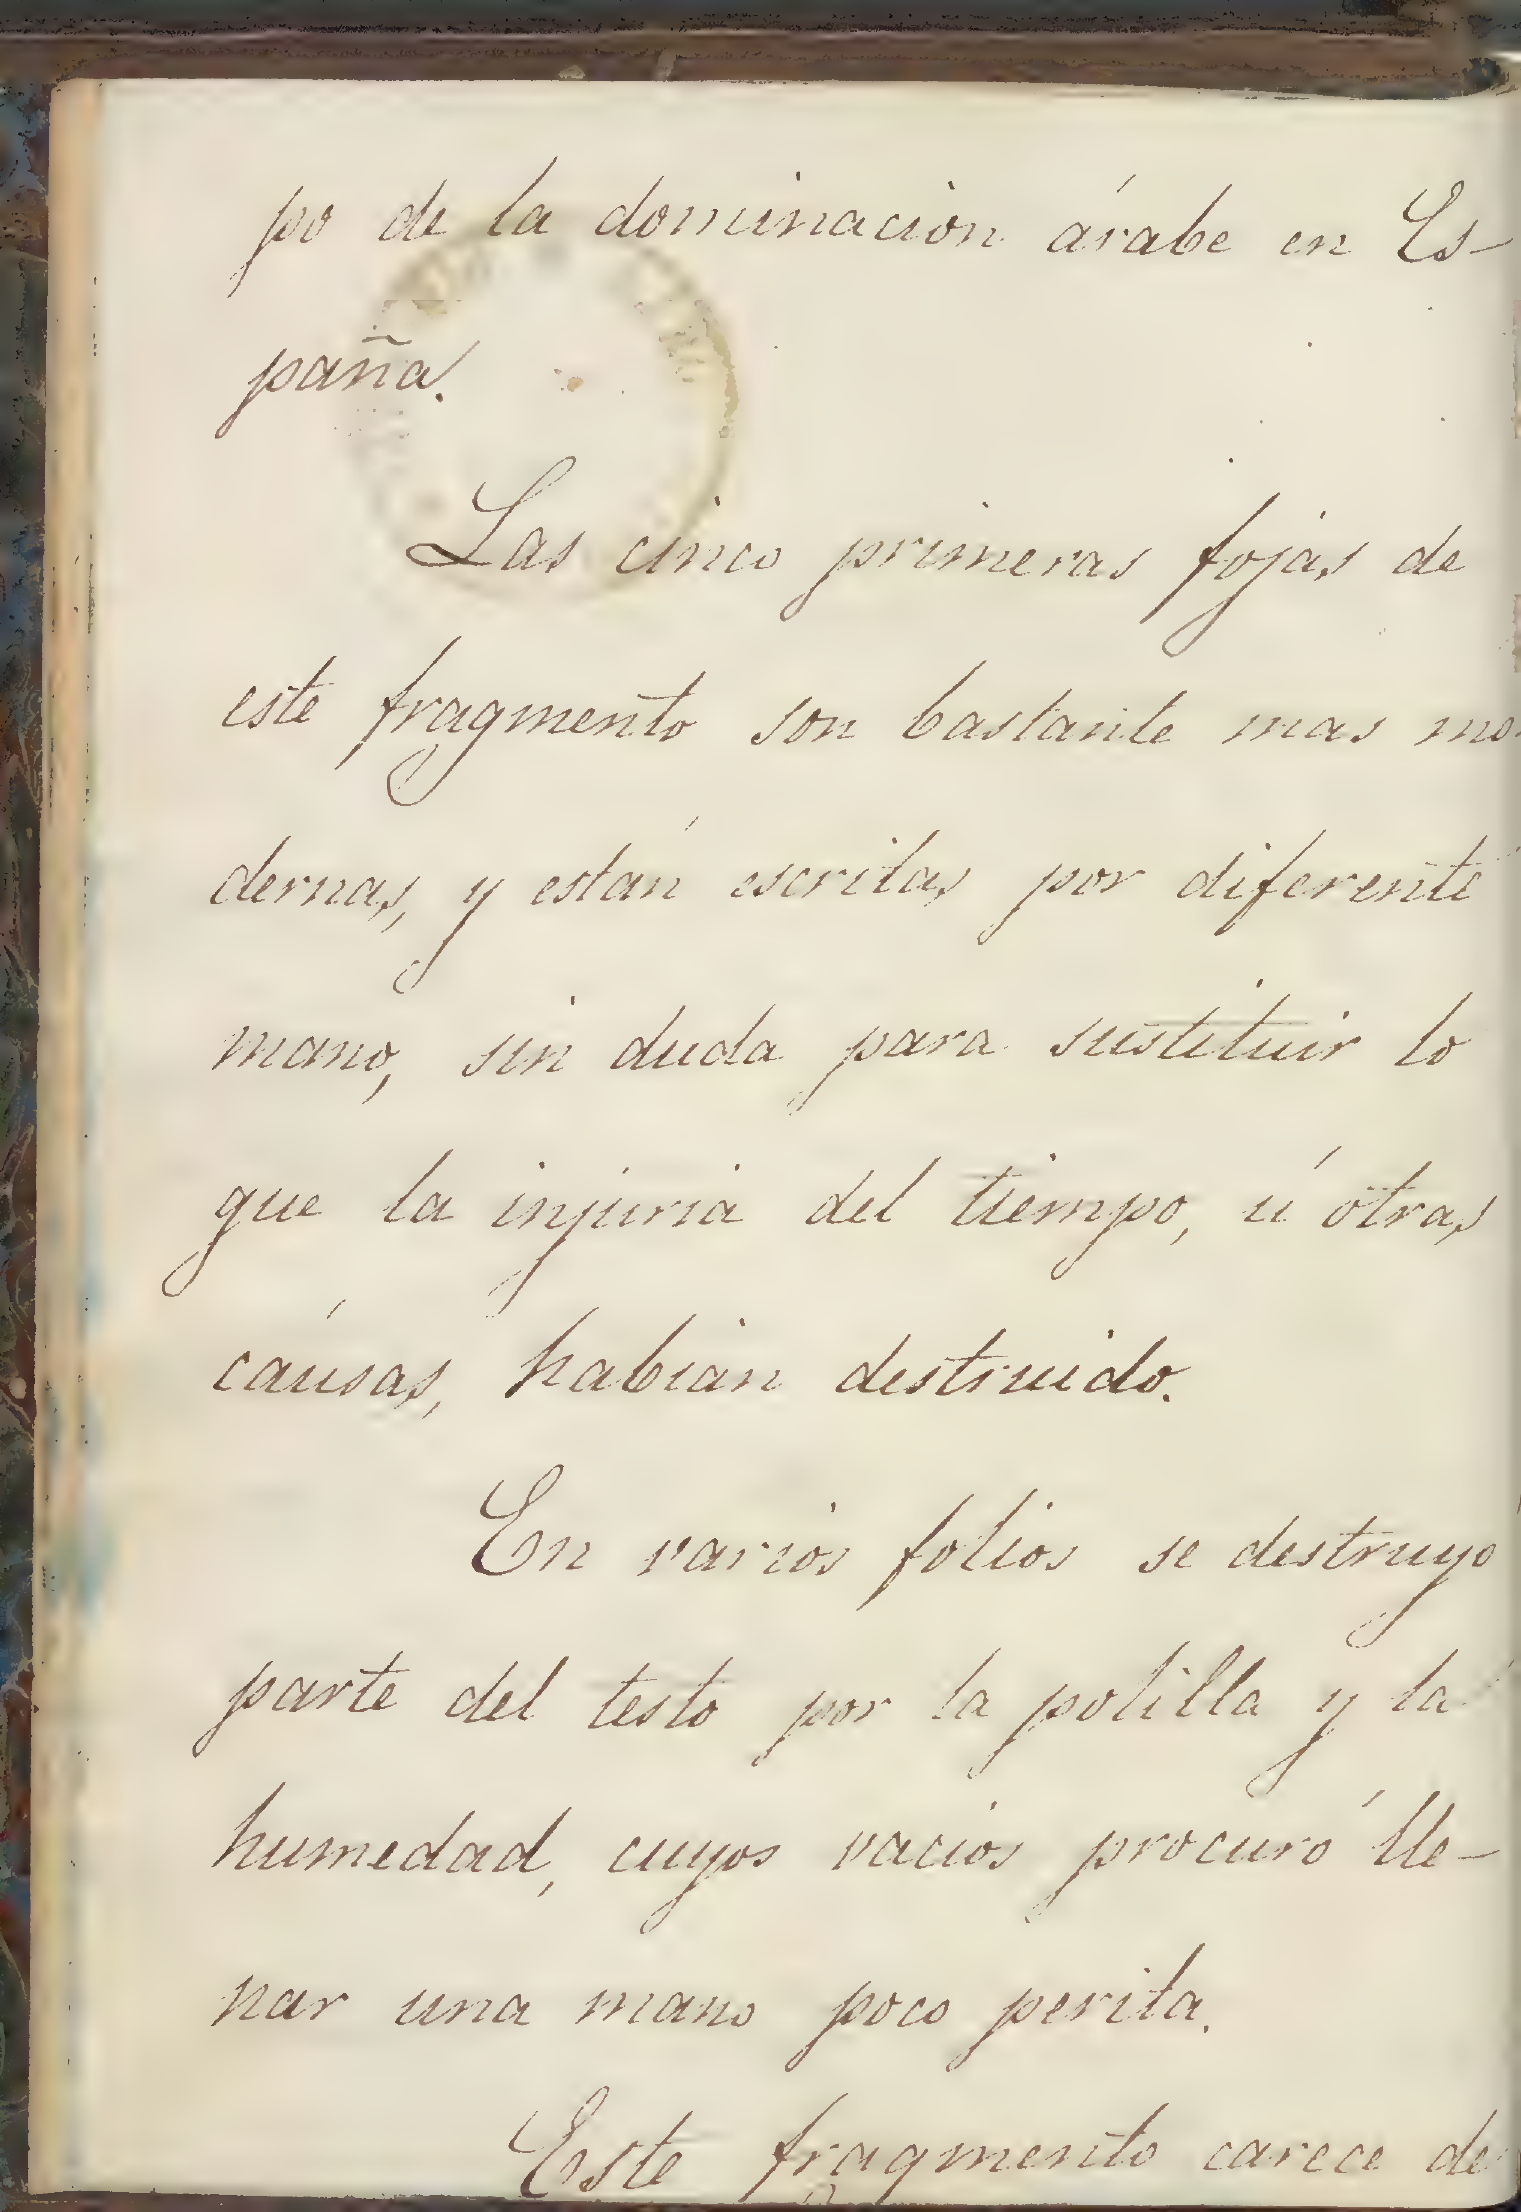 po de la dominacion árabe en Es-
paña.
Las cinco primeras fojas de
este fragmento son bastante mas mo-
dernas, y están escritas por diferente
mano, sin duda para sustituir lo
que la injuria del tiempo, ú otras
cáusas, habian destruido.
En varios folios se destruyó
parte del testo por la polilla y la
humedad, cuyos vacios procuró lle-
nar una mano poco perita.
Este fragmento carece de